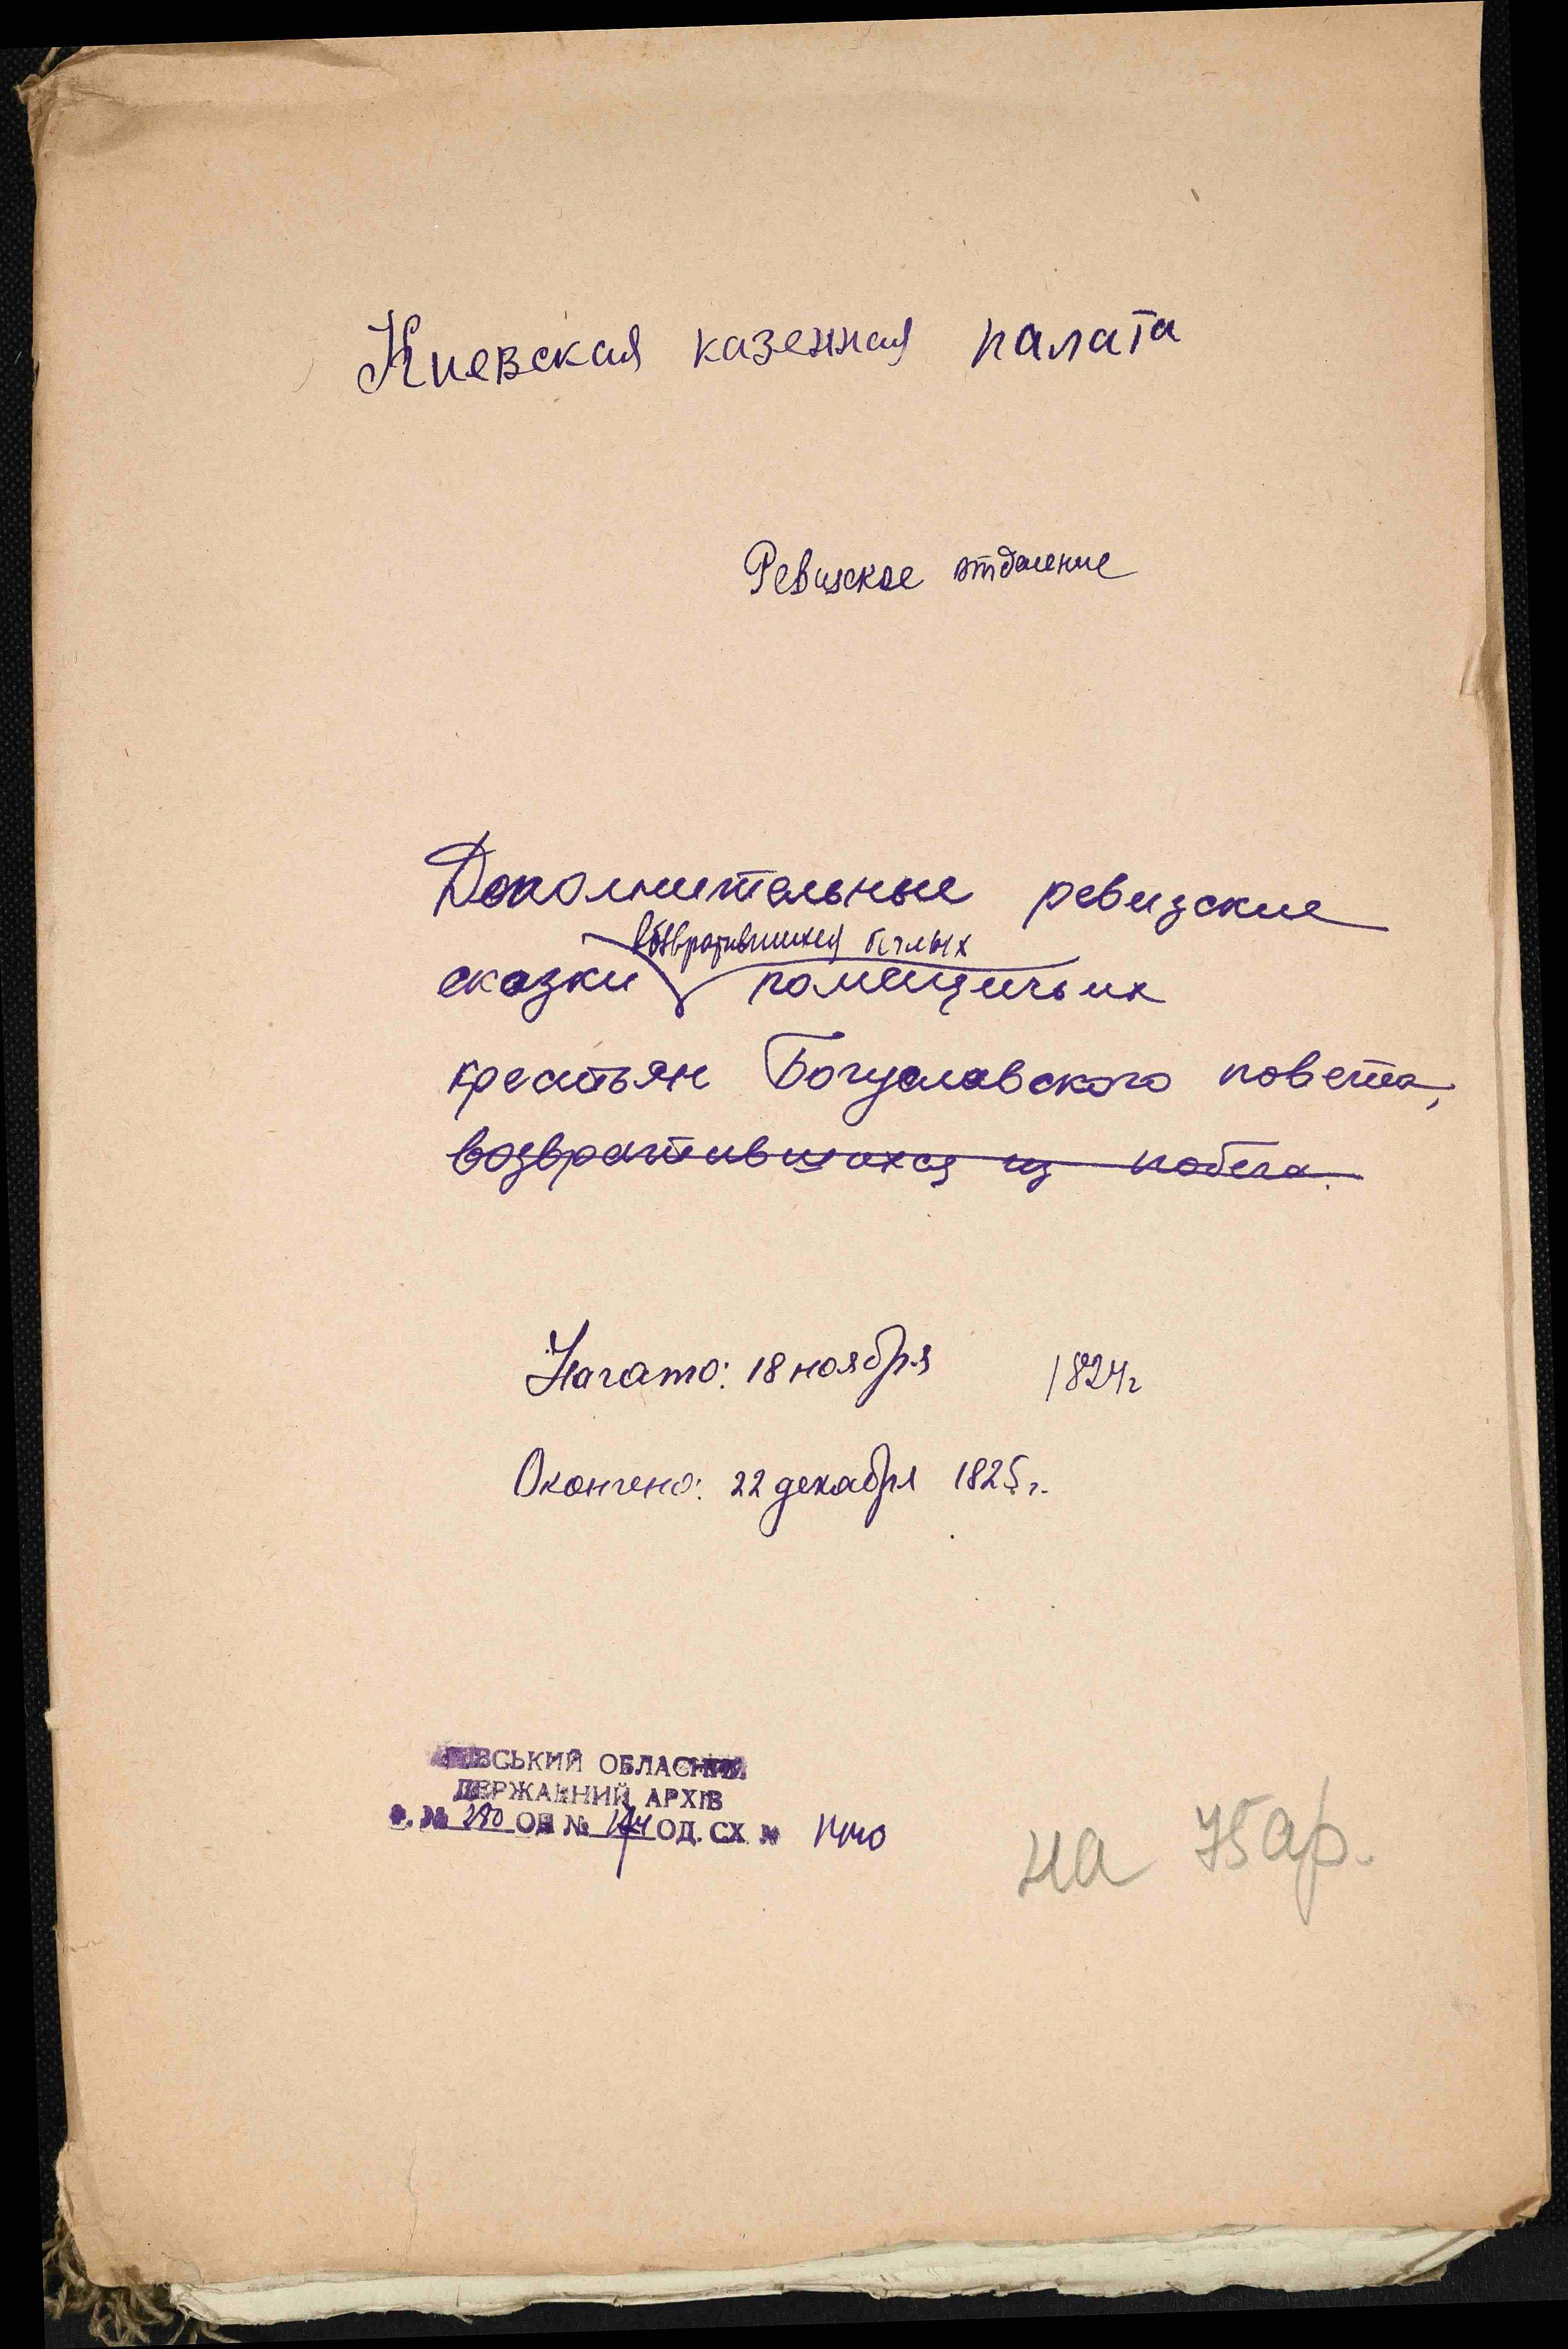 Киевская казенная палата
Ревизское отделение
Дополнительные ревизские
возвратившихся беглых
сказки помещичьих
крестьян Богуславского повета,
возвратившихся из побега.
Начато: 18 ноября 1824г
Окончено: 22 декабря 1825г.
ОБЛАСНИЙ
ДЕРЖАВНИЙ АРХІВ
Ф. № 280 ОП № ОД. СХ №
на 75 ар.